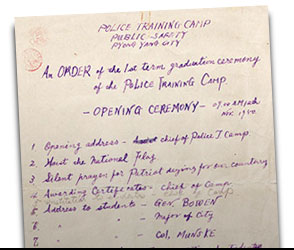 POLICE TRAINING CAMP
PUBLIC SAFETY
PYONG YANG CITY
An ORDER of the 1st term graduation ceremony
of the POLICE TRAINING CAMP
- OPENING CEREMONY - 09.00 AM
NOV. 1950
1 Opening address - chief of Police T Camp
2 Hoist the National Flag
3 Silent prayer for Patriot dying for our country
4 Awarding Certification - chief of Camp
5 Address to students - GEN. BOWEN
" " - Major of City
" " - COL. MUNSKE